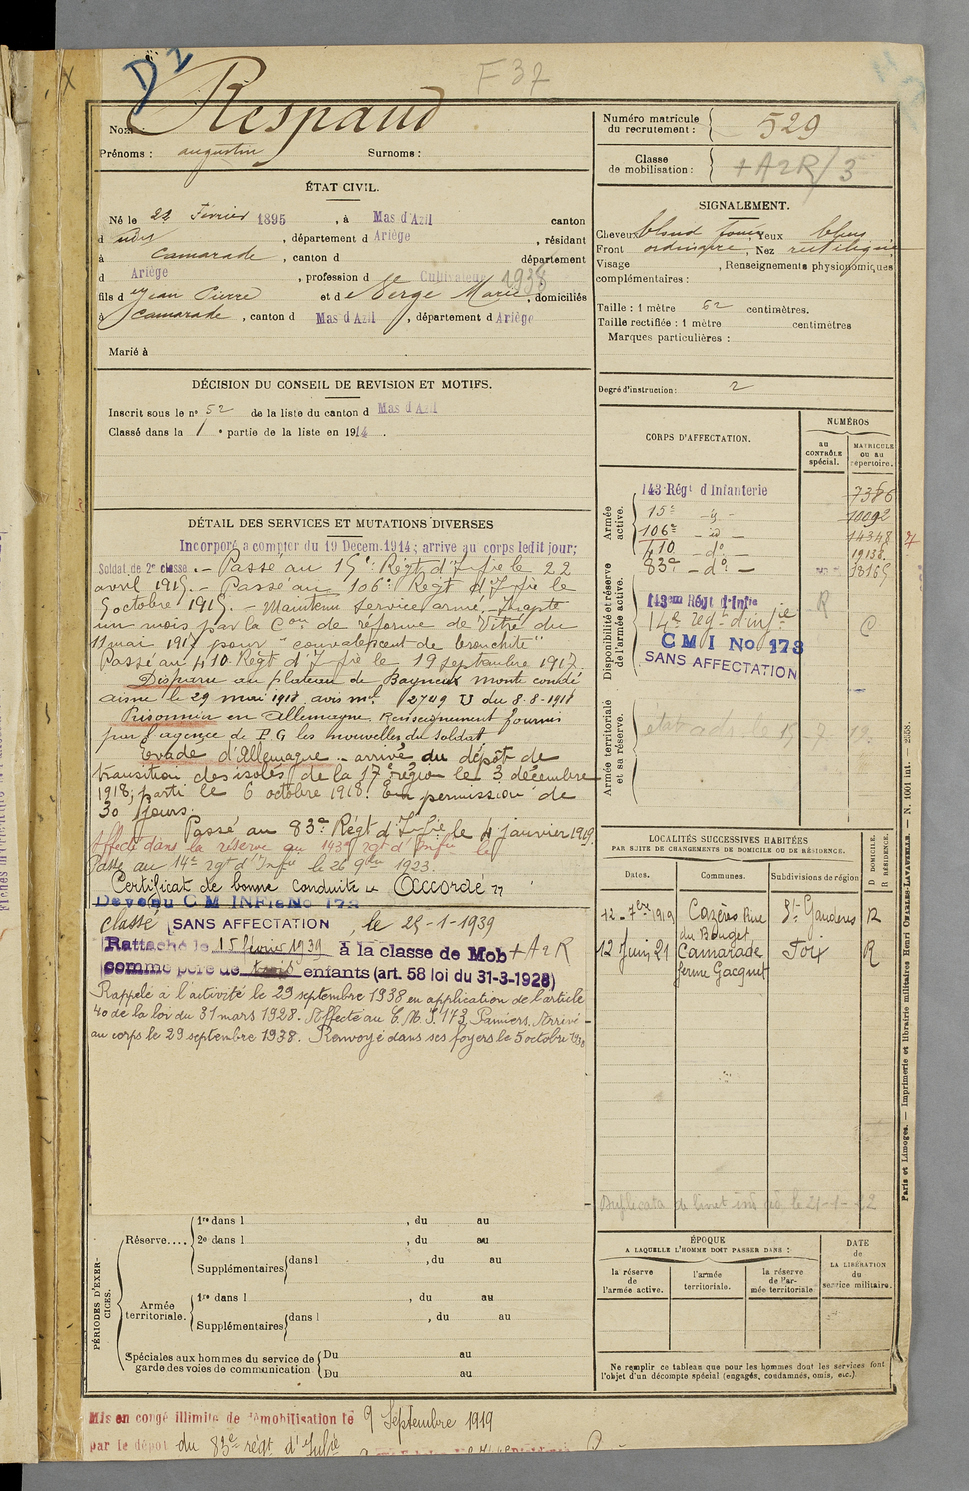 D2
F 37
Nom : Respaud
Prénoms : augustin Surnoms :
Numéro matricule du recrutement : 529
Classe de mobilisation : + A2R/3
ÉTAT CIVIL.
Né le 22 Février 1895, à Mas d'Azil canton
d udit, département d Ariège, résidant
à Camarade, canton d département
d Ariège, profession d Cultivateur 1938
fils d e Jean Pierre et de Verge Marie, domiciliés
à Camarade, canton d Mas d Azil, département d Ariège
Marié à
SIGNALEMENT.
Cheveux blond foncé, Yeux bleus
Front ordinaire, Nez rectiligne
Visage , Renseignements physionomiques
complémentaires :
Taille : 1 mètre 62 centimètres.
Taille rectifiée : 1 mètre centimètres
Marques particulières :
Degré d'instruction : 2
DÉCISION DU CONSEIL DE REVISION ET MOTIFS.
Inscrit sous le n° 52 de la liste du canton d Mas d Azil
Classé dans la 1 e partie de la liste en 1914.
DÉTAIL DES SERVICES ET MUTATIONS DIVERSES
Incorporé à compter du 19 Décem. 1914 ; arrivé au corps ledit jour;
Soldat de 2e classe. - Passé au 15e Régt d'Infie le 22
avril 1915. - Passé au 106e Régt d'Infie le
5 octobre 1915. - Maintenu service armé, - Inapte
un mois par la Con de réforme de Vitré du
11 mai 1917 pour "convalescent de bronchite"
Passé au 410 Régt d'Infie le 19 septembre 1917.
Disparu au plateau de Bagneux monte condé
aisne le 29 mai 1918 avis ml 12749 U du 8-8-1918
Prisonnier en Allemagne. Renseignement fournis
par l'agence de P.G les nouvelles du Soldat
Evadé d'Allemagne - arrivé du dépôt de
transition des isolés de la 17e région le 3 décembre
1918; parti le 6 octobre 1918. En permission de
30 jours.
Passé au 83e Régt d'Infie le 4 janvier 1919.
Affecté dans la réserve au 143e rgt d'Infie le
Passé au 14e rgt d'Infie le 26 9bre 1923.
Certificat de bonne conduite "Accordé"
Devenu C M INFie No 173
classé SANS AFFECTATION, le 25-1-1939
Rattaché le 15 février 1939 à la classe de Mob + A2R
comme père de trois enfants (art. 58 loi du 31-3-1928)
Rappelé à l'activité le 29 septembre 1938 en application de l'article
40 de la loi du 31 mars 1928. Affecté au C.M.I. 173 Pamiers. Arrivé
au corps le 29 septembre 1938. Renvoyé dans ses foyers le 5 octobre 1938
CORPS D'AFFECTATION.
NUMÉROS
au CONTRÔLE spécial.
MATRICULE ou au répertoire.
Armée active.
143 Régt d Infanterie 7386
15e - d° - 10092
106e - d° - 14348
410 - d° - 19138
83e - d° - 18165
Disponibilité et réserve de l'armée active.
143em Régt d'Infie R
14e regt d'infie C
C M I No 173
SANS AFFECTATION
Armée territoriale et sa réserve.
LOCALITÉS SUCCESSIVES HABITÉES
PAR SUITE DE CHANGEMENTS DE DOMICILE OU DE RÉSIDENCE.
Dates.
Communes.
Subdivisions de région
D DOMICILE.
R RÉSIDENCE.
12 - 7bre 1919 Cazères Rue St Gaudens R
du Bouget
12 Juin 21 Camarade Foix R
ferme Gacquet
Duplicata de livret
ÉPOQUE
A LAQUELLE L'HOMME DOIT PASSER DANS :
la réserve de l'armée active.
l'armée territoriale.
la réserve de l'armée territoriale
DATE de LA LIBÉRATION du service militaire.
Ne remplir ce tableau que pour les hommes dont les services font
l'objet d'un décompte spécial (engagés, condamnés, omis, etc.)
PÉRIODES D'EXERCICES.
Réserve....
1re dans l , du au
2e dans l , du au
Supplémentaires dans l , du au
Armée territoriale.
1re dans l , du au
Supplémentaires dans l , du au
Spéciales aux hommes du service de garde des voies de communication
Du au
Du au
Mis en congé illimité de démobilisation le 9 Septembre 1919
par le dépôt du 83e régt d'Infie
Paris et Limoges. — Imprimerie et librairie militaires Henri CHARLES-LAVAUZELLE. — N. 1001 int. — 2558.